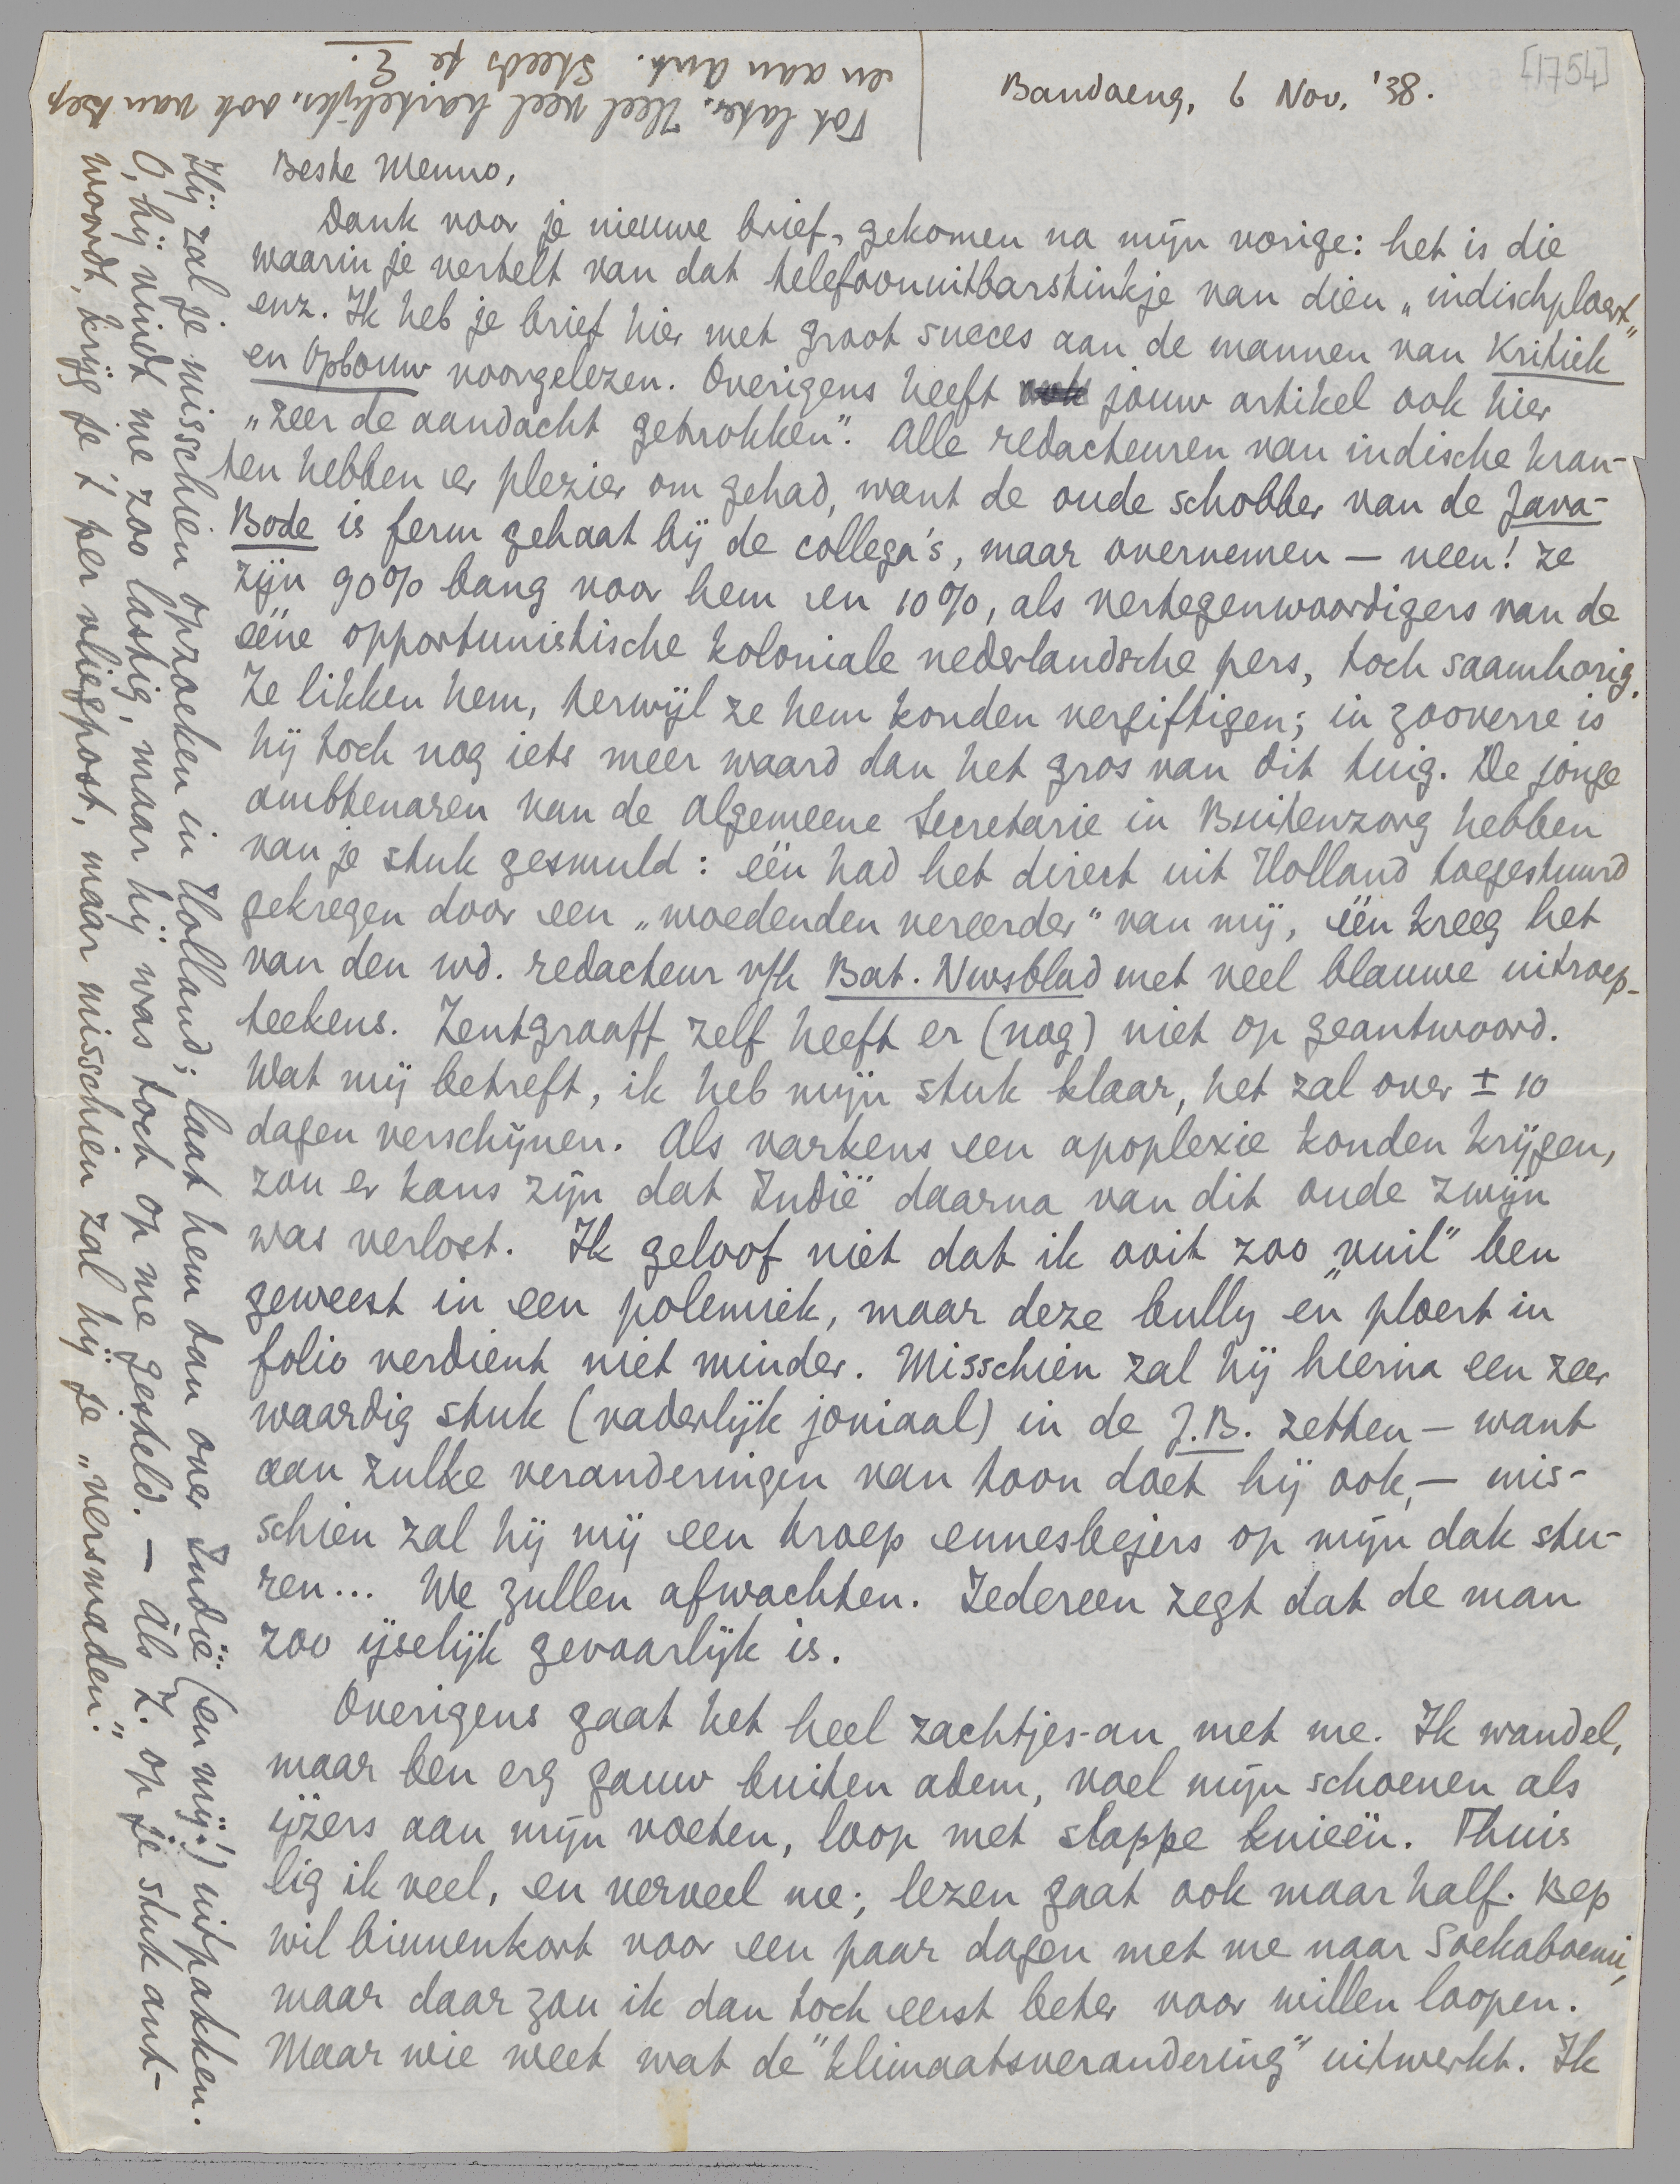 [1754]
Bandoeng, 6 Nov. '38.
Beste Menno,
Dank voor je nieuwe brief, gekomen na mijn vorige: het is die
waarin je vertelt van dat telefoonuitbarstinkje van dien „indischploert"
enz. Ik heb je brief hier met groot succes aan de mannen van Kritiek
en Opbouw voorgelezen. Overigens heeft jouw artikel ook hier
„zeer de aandacht getrokken". Alle redacteuren van indische kran-
ten hebben er plezier om gehad, want de oude schobber van de Java-
Bode is ferm gehaat bij de collega's, maar overnemen — neen! Ze
zijn 90% bang voor hem en 10%, als vertegenwoordigers van de
ééne opportunistische koloniale nederlandsche pers, toch saamhorig.
Ze likken hem, terwijl ze hem konden vergiftigen; in zooverre is
hij toch nog iets meer waard dan het gros van dit tuig. De jonge
ambtenaren van de Algemeene Secretarie in Buitenzorg hebben
van je stuk gesmuld: één had het direct uit Holland toegestuurd
gekregen door een „woedenden vereerder" van mij, één kreeg het
van den wd. redacteur v/h Bat. Nwsblad met veel blauwe uitroep-
teekens. Zentgraaff zelf heeft er (nog) niet op geantwoord.
Wat mij betreft, ik heb mijn stuk klaar, het zal over ± 10
dagen verschijnen. Als varkens een apoplexie konden krijgen,
zou er kans zijn dat Indië daarna van dit oude zwijn
was verlost. Ik geloof niet dat ik ooit zoo „vuil" ben
geweest in een polemiek, maar deze bully en ploert in
folio verdient niet minder. Misschien zal hij hierna een zeer
waardig stuk (vaderlijk joviaal) in de J.B. zetten — want
aan zulke veranderingen van toon doet hij ook, — mis-
schien zal hij mij een troep ennesbejers op mijn dak stu-
ren... We zullen afwachten. Iedereen zegt dat de man
zoo ijselijk gevaarlijk is.
Overigens gaat het heel zachtjes-an met me. Ik wandel,
maar ben erg gauw buiten adem, voel mijn schoenen als
ijzers aan mijn voeten, loop met slappe knieën. Thuis
lig ik veel, en verveel me; lezen gaat ook maar half. Bep
wil binnenkort voor een paar dagen met me naar Soekaboemi,
maar daar zou ik dan toch eerst beter voor willen loopen.
Maar wie weet wat de "klimaatsverandering" uitwerkt. Ik
Hij zal je misschien opzoeken in Holland; laat hem dan over Indië (en mij!) uitpakken.
O, hij vindt me zoo lastig, maar hij was toch op me gesteld. — Als Z. op je stuk ant-
woordt, krijg je 't per vliegpost, maar misschien zal hij je „versmaden".
Tot later. Heel veel hartelijks, ook van Bep
en aan Ant. Steeds je E.